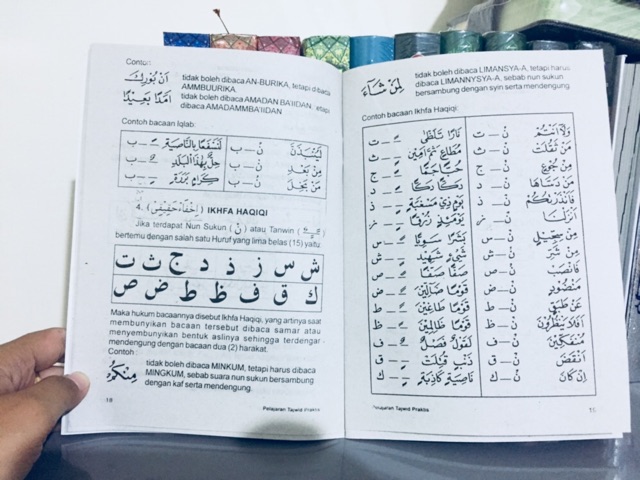 Contoh:
tidak boleh dibaca AN-BURIKA, tetapi dibaca
AMMBUURIKA
اَنْ بُوْرِكَ
tidak boleh dibaca AMADAN BA'IIDAN, tetapi
dibaca AMADAMMBA'IIDAN
اَمَدًا بَعِيْدًا
Contoh bacaan Iqlab:
لَيُنْبَذَنَّ نْ – ب لَنَسْفَعًا بِالنَّاصِيَةِ ب
مِنْ بَعْدِ نْ – ب حِلٌّ بِهٰذَا الْبَلَدِ ب
مَنْ بَخِلَ نْ – ب كِرَامٍ بَرَرَةٍ ب
4. (اِخْفَاءْ حَقِيْقِيْ) IKHFA HAQIQI
Jika terdapat Nun Sukun (نْ) atau Tanwin
bertemu dengan salah satu Huruf yang lima belas (15) yaitu:
ش س ز ذ د ج ث ت
ك ق ف ظ ط ض ص
Maka hukum bacaannya disebut Ikhfa Haqiqi, yang artinya saat
membunyikan bacaan tersebut dibaca samar atau
menyembunyikan bentuk aslinya sehingga terdengar
mendengung dengan bacaan dua (2) harakat.
Contoh :
tidak boleh dibaca MINKUM, tetapi harus dibaca
MINGKUM, sebab suara nun sukun bersambung
dengan kaf serta mendengung.
مِنْكُمْ
18
Pelajaran Tajwid Praktis
tidak boleh dibaca LIMANSYA-A, tetapi harus
dibaca LIMANNYSYA-A, sebab nun sukun
bersambung dengan syin serta mendengung.
لِمَنْ شَاءَ
Contoh bacaan Ikhfa Haqiqi:
وَلَا اَنْتُمْ نْ – ت نَارًا تَلَظّٰى ت
مَنْ ثَقُلَتْ نْ – ث مُطَاعٍ ثَمَّ اَمِيْنٍ ث
مِنْ جُوْعٍ نْ – ج حُبًّا جَمًّا ج
مَنْ دَسّٰاهَا نْ – د دَكًّا دَكًّا د
فَاَنْذَرْتُكُمْ نْ – ذ يَوْمٍ ذِيْ مَسْغَبَةٍ ذ
اَنْزَلْنَا نْ – ز يَوْمَئِذٍ زُرْقًا ز
مِنْ سِجِّيْلٍ نْ – س بَشَرًا سَوِيًّا س
مِنْ شَرِّ نْ – ش شَيْءٍ شَهِيْدٌ ش
فَانْصَبْ نْ – ص صَفًّا صَفًّا ص
مَنْضُوْدٍ نْ – ض قَوْمًا ضَالِّيْنَ ض
عَنْ طَبَقٍ نْ – ط قَوْمًا طَاغِيْنَ ط
اَفَلَا يَنْظُرُوْنَ نْ – ظ قَوْمًا ظَالِمِيْنَ ظ
مُنْفَكِّيْنَ نْ – ف لَقَوْلٌ فَصْلٌ ف
اَنْقَضَ نْ – ق ذَنْبٍ قُتِلَتْ ق
اِنْ كَانَ نْ – ك نَاصِيَةٍ كَاذِبَةٍ ك
Pelajaran Tajwid Praktis